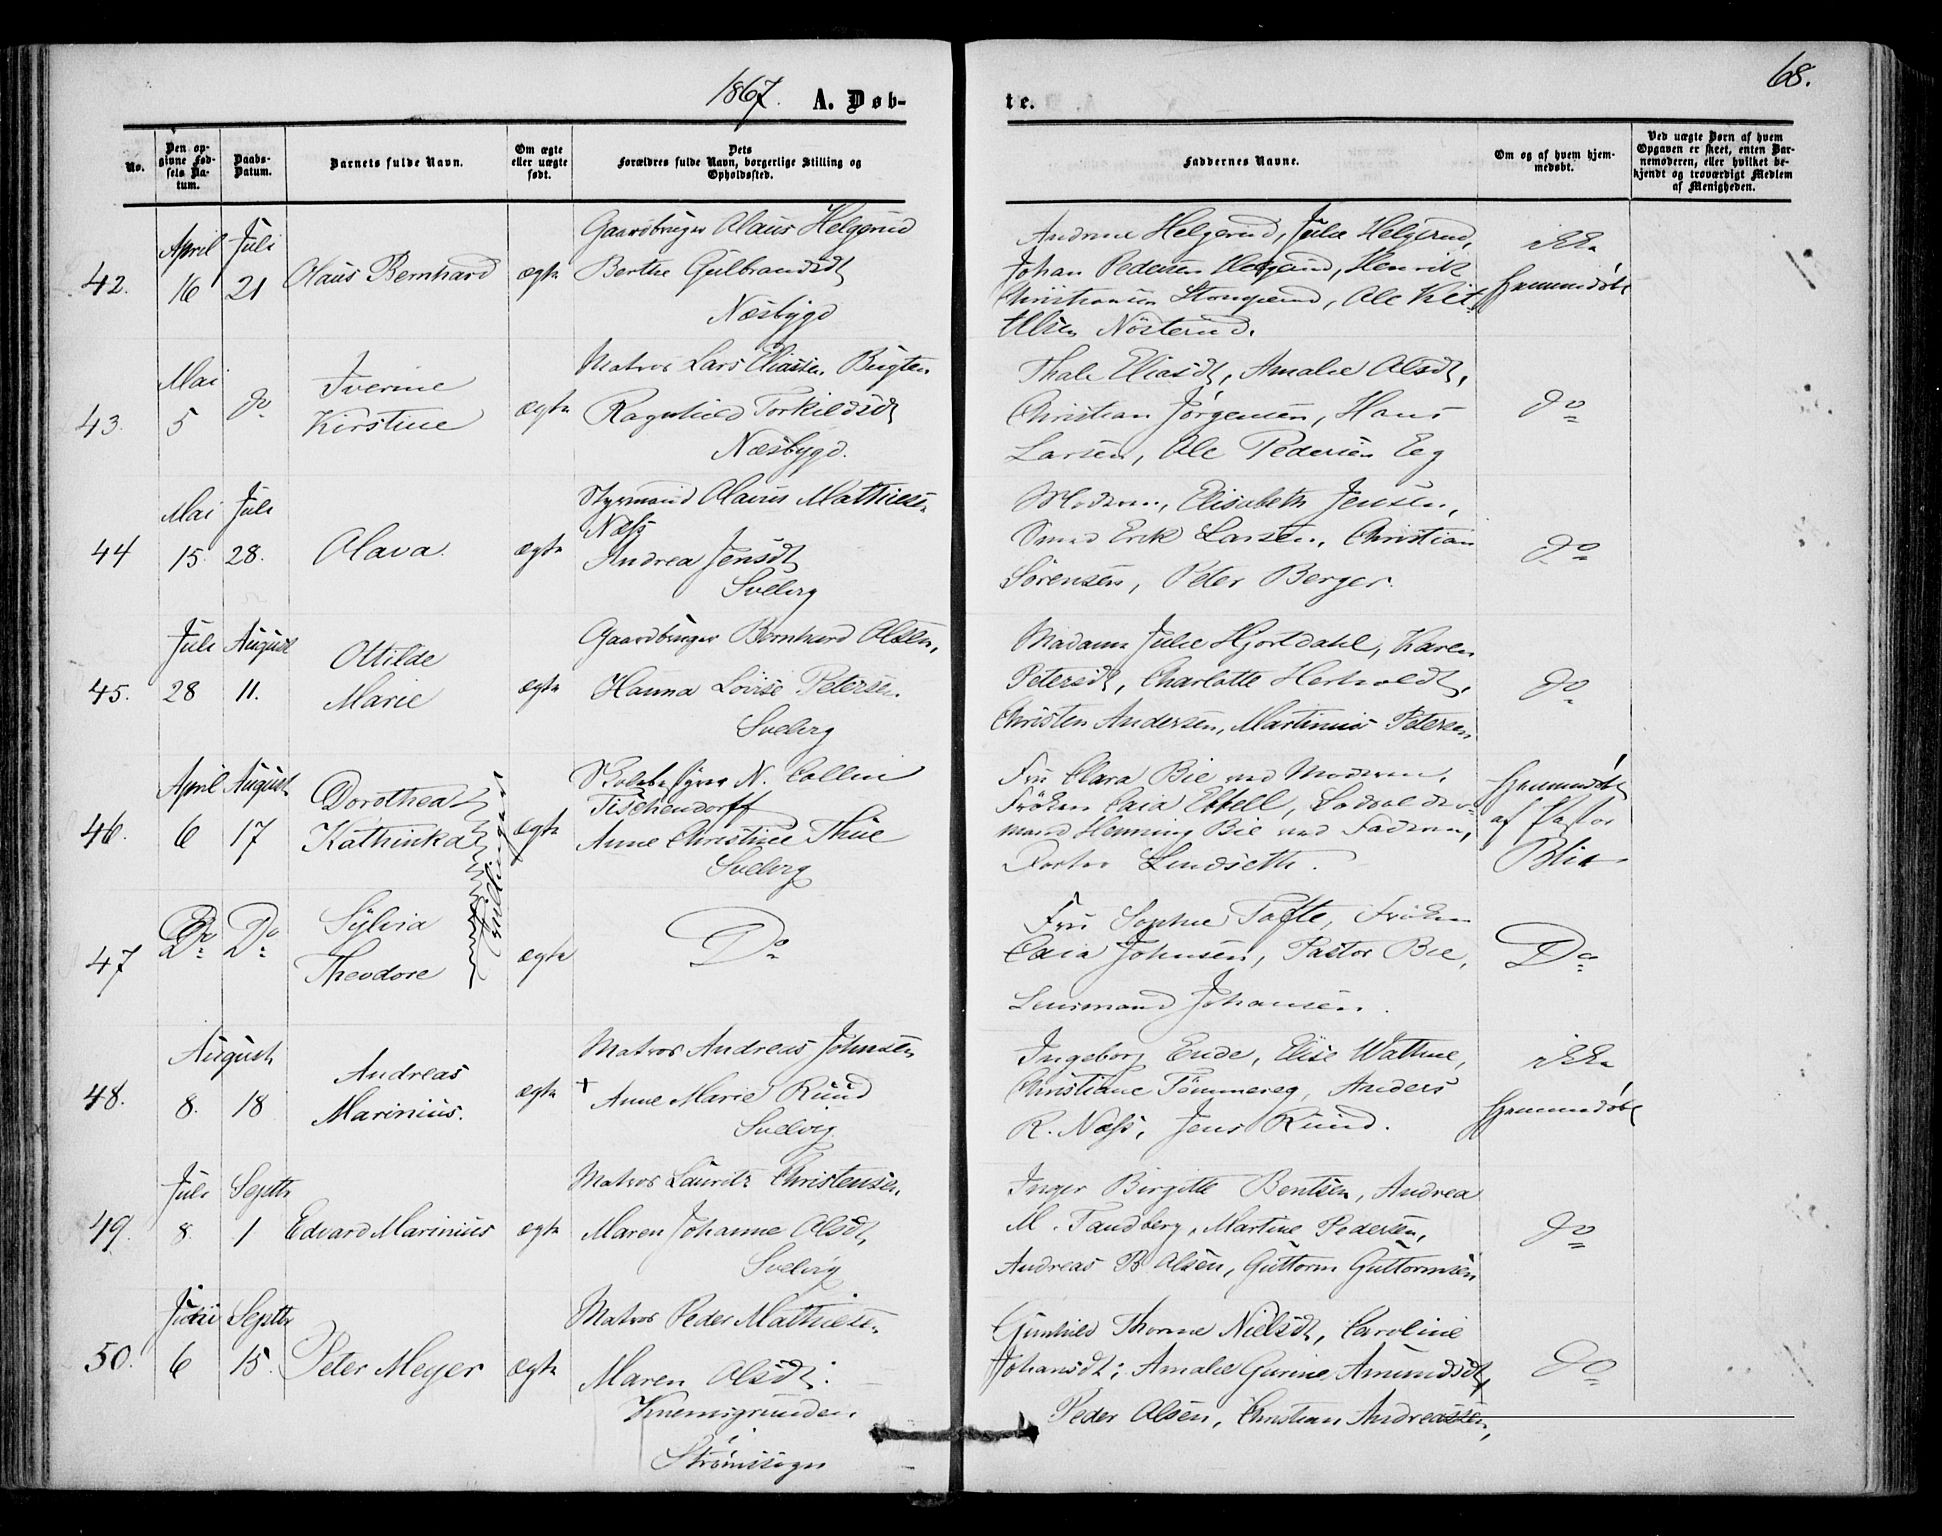 1867.
A. Døb-
te.
68.
No.
Den op-
givne Fød-
sels Da-
tum.
Daabs-
Datum.
Barnets fulde Navn.
Om ægte
eller uægte
født.
Dets
Forældres fulde Navn, borgerlige Stilling og
Opholdssted.
Faddernes Navne.
Om og af hvem hjem-
medøbt.
Ved uægte Børn af hvem
Opgaven er skeet, enten Bar-
nemoderen, eller hvilket be-
kjendt og troværdigt Medlem
af Menigheden.
42.
April
16
Juli
21
Olaus Bernhard
ægte
Gaardbruger Olaus Helgerud
Berthe Gulbrandsdt
Næsbygd
Helgerud, Julie Helgerud,
Johan Pedersen Helgerud, Henrik
Christiansen, Ole
Nøsterud.
ikke
hjemmedøbt
43.
Mai
5
do
Iverine
Kirstine
ægte
Matros Lars Eliassen Bugten
Ragnhild Torkildsdt
Næsbygd.
Thale Eliasdt, Amalie Olsdt,
Christian Jørgensen, Hans
Larsen, Ole Pedersen Eeg
do
44
Mai
15.
Juli
28.
Olava.
ægte
Styrmand Olavus Mathiesen
Næss
Andrea Jensdt
Svelvig
Moderen, Elisabeth Jensen,
Smed Erik Larsen, Christian
Sørensen, Peter Berger.
do
45.
Juli
28
August
11.
Ottilde
Marie
ægte
Gaardbruger Bernhard Olsen,
Hanna Lovise Petersen.
Svelvig
Madame Julie Hjortdahl, Karen
Petersdt, Charlotte
Christen Andersen, Martinius Petersen
do
46.
April
6
August
17
Dorothea
Kathinka
Tvillinger
ægte
N. Collin
Tischendorff
Anne Christine Thue
Svelvig
Fru Clara Bie ved Moderen,
Frøken Caia
mand Henning Bie ved Faderen,
Doctor Lindseth.
hjemmedøbt
af Pastor
Blix
47
Do
Do
Sylvia
Theodore
ægte
Do
Fru Sophie Tofte, Frøken
Caia Johnsen, Pastor Bie,
Lensmand Johansen.
Do
48.
August
8.
18
Andreas
Marinius.
ægte
Matros Andreas Johnsen
+ Anne Marie Ruud
Svelvig
Ingeborg Ende, Elise Wathne,
Christiane Tømmereg, Anders
R. Næss, Jens Ruud.
ikke
hjemmedøbt
49.
Juli
8
Septbr
1
Edvard Marinius
ægte
Matros Lauritz Christensen,
Maren Johanne Olsdt,
Svelvig
Inger Birgitte Bentsen, Andrea
M. Tandberg, Martine Pedersen,
Andreas B. Olsen, Guttorm Guttormsen
do
50.
Juni
6
Septbr
15.
Peter Meyer
ægte
Matros Peder Mathiesen
Maren Olsdt.
Knemsgrunden,
Strømssogn
Gunhild Thorine Nielsdt, Caroline
Johansdt; Amalie Gurine Amundsdt,
Peder Olsen, Christian Andreassen,
do